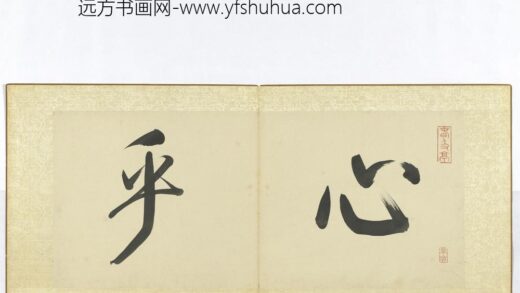 远方书画网-www.yfshuhua.com
心
乎